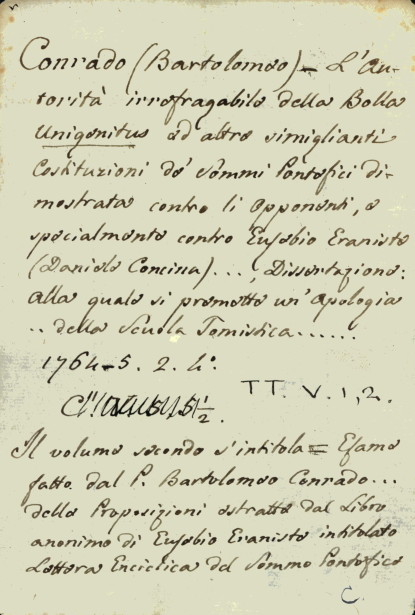 Conrado (Bartolomeo) = L'Au-
torità irrefragabile della Bolla
Unigenitus ed altre simiglianti
Costituzioni de' Sommi Pontefici di-
mostrata contro li Opponenti, e
specialmente contro Eusebio Eraniste
(Daniele Concina)..., Dissertazione:
alla quale si premette un' Apologia
.. della Scuola Tomistica......
1764-5. 2. 4°.
TT. V. 1, 2.
Il volume secondo s'intitola = Esame
fatto dal P. Bartolomeo Conrado...
delle Proposizioni estratte dal Libro
anonimo di Eusebio Eraniste intitolato
Lettera Enciclica del Sommo Pontefice
C